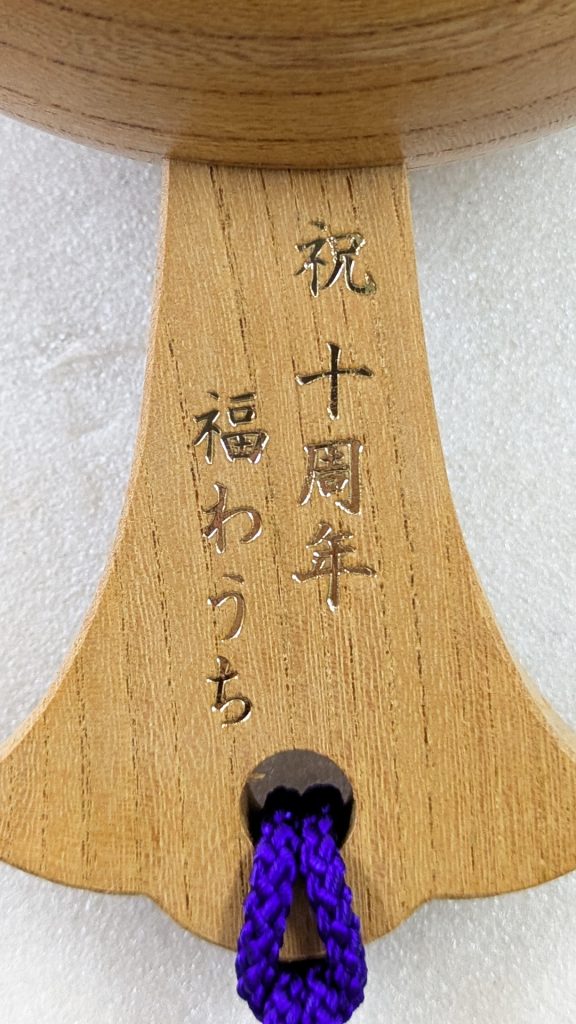 祝十周年
福わうち